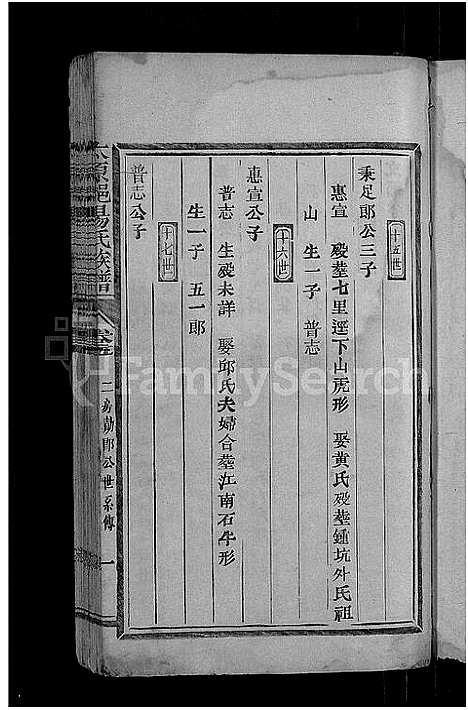 十五世
秉足郎公三子
惠宣 歿塟七里逕下山虎形 娶黄氏歿塟鍾坑外氏祖
山 生一子 普志
十六世
惠宣公子
普志 生歿未詳 娶邱氏夫婦合塟江南石牛形
生一子 五一郎
十七世
普志公子
太原邑楊氏族譜
二房勛郎公世系傳
一
FamilySearch